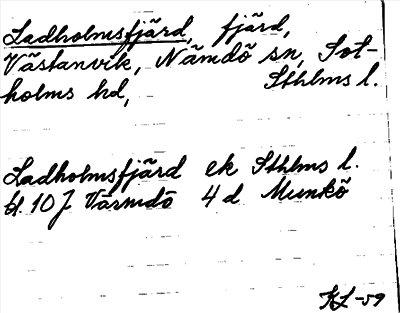 Ladholmsfjärd, fjärd,
Västanvik, Nämdö sn, Sot-
holms hd, Sthlms l.
Ladholmsfjärd ek Sthlms l.
bl. 10 J Värmdö 4 d Munkö
KL-59